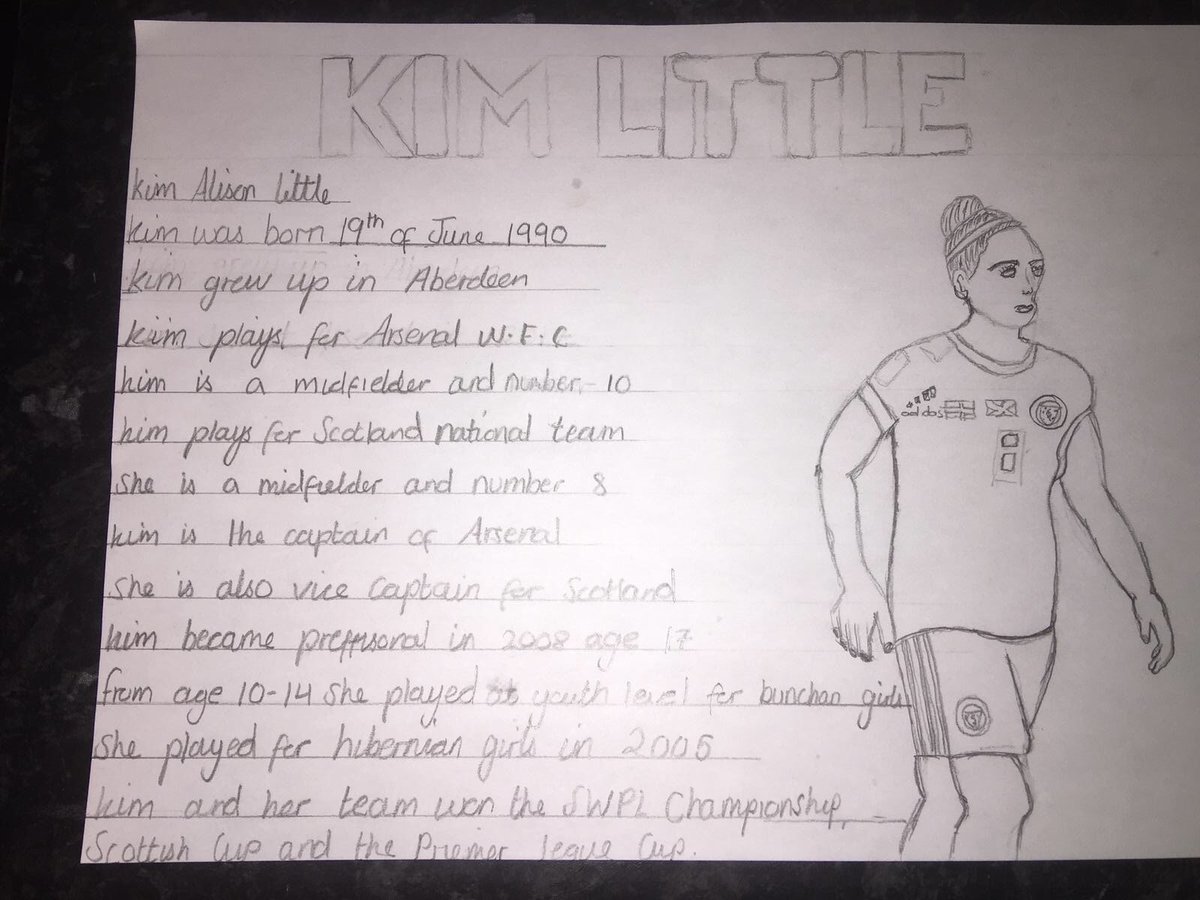 KIM LITTLE
Kim Alison little
Kim was born 19th of June 1990
Kim grew up in Aberdeen
Kim plays for Arsenal W.F.C
kim is a midfielder and number - 10
kim plays for Scotland national team
She is a midfielder and number 8
kim is the captain of Arsenal
She is also vice Captain for Scotland
kim became preffusonal in 2008 age 17
from age 10-14 she played at youth level for bunchan girls
She played for hibernian girls in 2005
kim and her team won the SWPL Championship,
Scottish Cup and the Priemer leauge Cup.
adidas
8